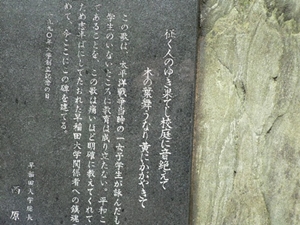 征く人のゆき果てし校庭に音絶えて
木の葉舞うなり黄にかがやきて
この歌は、太平洋戦争当時の一女子学生が詠んだも
学生のいないところに教育は成り立たない。平和こ
であることを、この歌は痛いほど明確に教えてくれて
ため志半ばにしてたおれた早稲田大学関係者への鎮魂
めて、今ここにこの碑を建てる。
一九九〇年
早稲田大学総長
西原